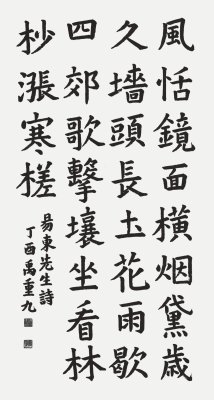 風恬鏡面橫烟黛歲
久墻頭長土花雨歇
四郊歌擊壤坐看林
杪漲寒槎
易東先生詩
丁酉禹重九